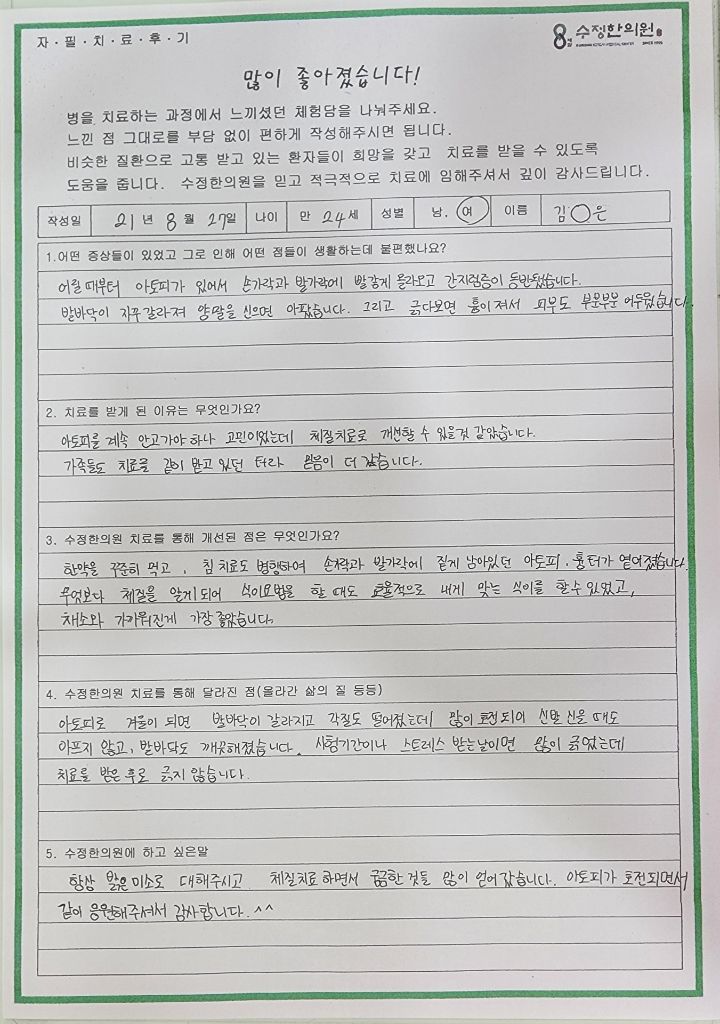 자·필·치·료·후·기
8체질 수정한의원
많이 좋아졌습니다!
병을 치료하는 과정에서 느끼셨던 체험담을 나눠주세요.
느낀 점 그대로를 부담 없이 편하게 작성해주시면 됩니다.
비슷한 질환으로 고통 받고 있는 환자들이 희망을 갖고 치료를 받을 수 있도록
도움을 줍니다. 수정한의원을 믿고 적극적으로 치료에 임해주셔서 깊이 감사드립니다.
작성일 21년 8월 27일 나이 만 24세 성별 남. 여 이름 김○은
1.어떤 증상들이 있었고 그로 인해 어떤 점들이 생활하는데 불편했나요?
어릴때부터 아토피가 있어서 손가락과 발가락에 빨갛게 올라오고 간지럼증이 동반됐습니다.
발바닥이 자꾸 갈라져 양말을 신으면 아팠습니다. 그리고 긁다보면 흉이 져서 피부도 부분부분 어두웠습니다.
2. 치료를 받게 된 이유는 무엇인가요?
아토피를 계속 안고가야 하나 고민이었는데 체질치료로 개선할 수 있을것 같았습니다.
가족들도 치료를 같이 받고 있던 터라 믿음이 더 갔습니다.
3. 수정한의원 치료를 통해 개선된 점은 무엇인가요?
한약을 꾸준히 먹고, 침 치료도 병행하여 손가락과 발가락에 짙게 남아있던 아토피, 흉터가 옅어졌습니다.
무엇보다 체질을 알게 되어 식이요법을 할 때도 효율적으로 내게 맞는 식이를 할 수 있었고,
채소와 가까워진게 가장 좋았습니다.
4. 수정한의원 치료를 통해 달라진 점(올라간 삶의 질 등등)
아토피로 겨울이 되면 발바닥이 갈라지고 각질도 떨어졌는데 많이 호전되어 신발 신을 때도
아프지 않고, 발바닥도 깨끗해졌습니다. 시험기간이나 스트레스 받는날이면 많이 긁었는데
치료를 받은 후로 긁지 않습니다.
5. 수정한의원에 하고 싶은말
항상 밝은 미소로 대해주시고 체질치료 하면서 궁금한 것들 많이 얻어갔습니다. 아토피가 호전되면서
같이 응원해주셔서 감사합니다. ^^